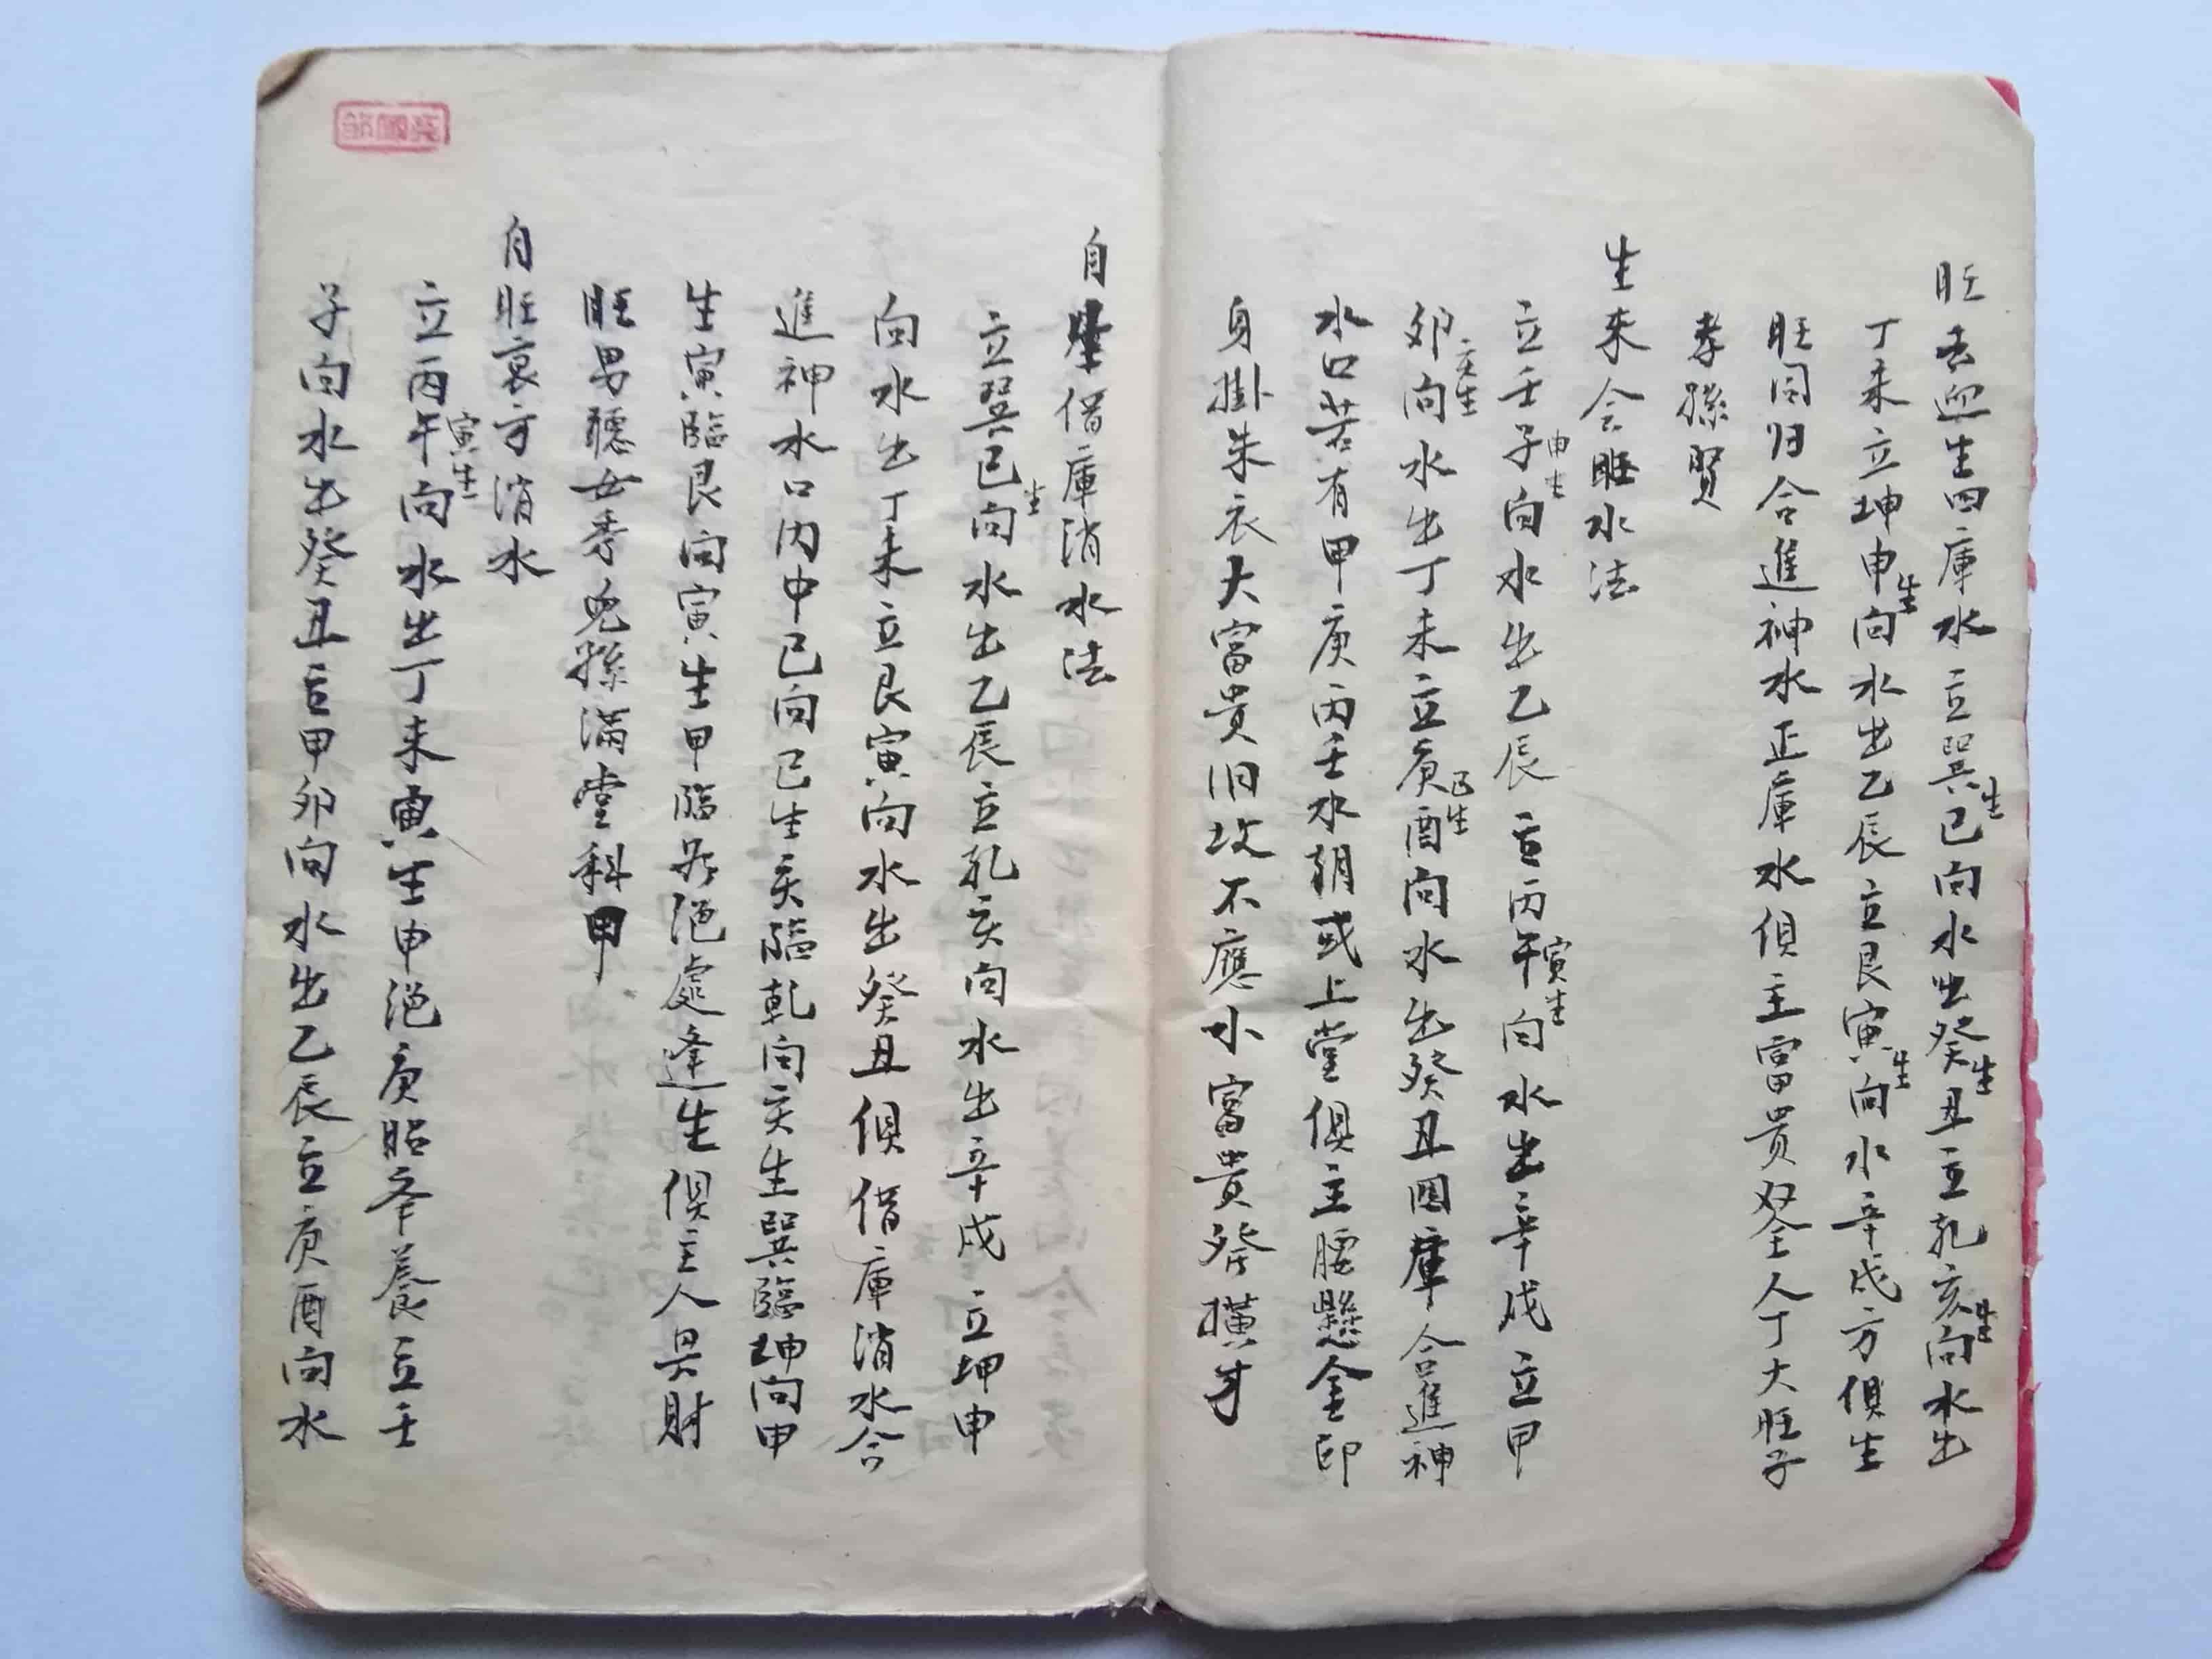 旺去迎生四庫水立巽生巳向水出癸生丑立乾亥生向水出
丁未立坤申生向水出乙辰立艮寅生向水辛戌方俱生
旺同归合進神水正庫水俱主富贵双全人丁大旺子
孝孫賢
生来会旺水法
立壬子申生向水出乙辰立丙午寅生向水出辛戌立甲
卯亥生向水出丁未立庚酉巳生向水出癸丑四庫合進神
水口若有甲庚丙壬水朝或上堂俱主腰懸金印
身掛朱衣大富貴旧坟不應小富貴發横才
自生借庫消水法
立巽巳生向水出乙辰立乾亥向水出辛戌立坤申
向水出丁未立艮寅向水出癸丑俱借庫消水合
進神水口内中巳向巳生亥臨乾向亥生巽臨坤向申
生寅臨艮向寅生甲臨絶處逢生俱主人旲財
旺男聰女秀兒孫滿堂科甲
自旺衰方消水
立丙午寅生向水出丁未寅生申絶庚胎辛養立壬
子向水出癸丑立甲卯向水出乙辰立庚酉向水